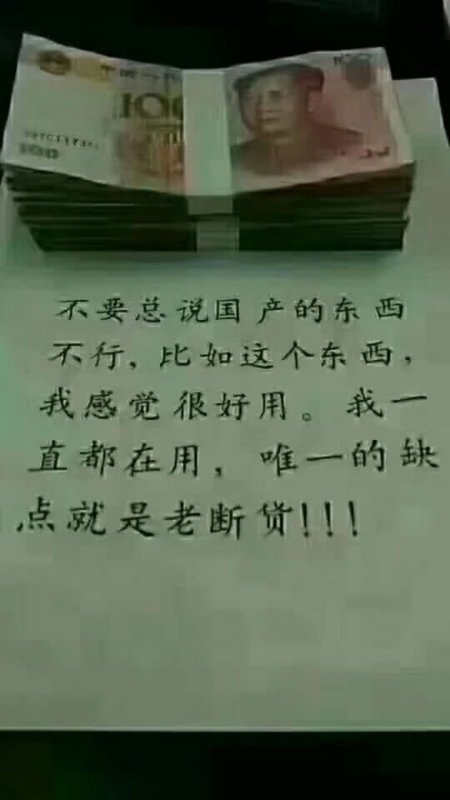 100
100
100
不要总说国产的东西
不行,比如这个东西,
我感觉很好用。我一
直都在用,唯一的缺
点就是老断货!!!